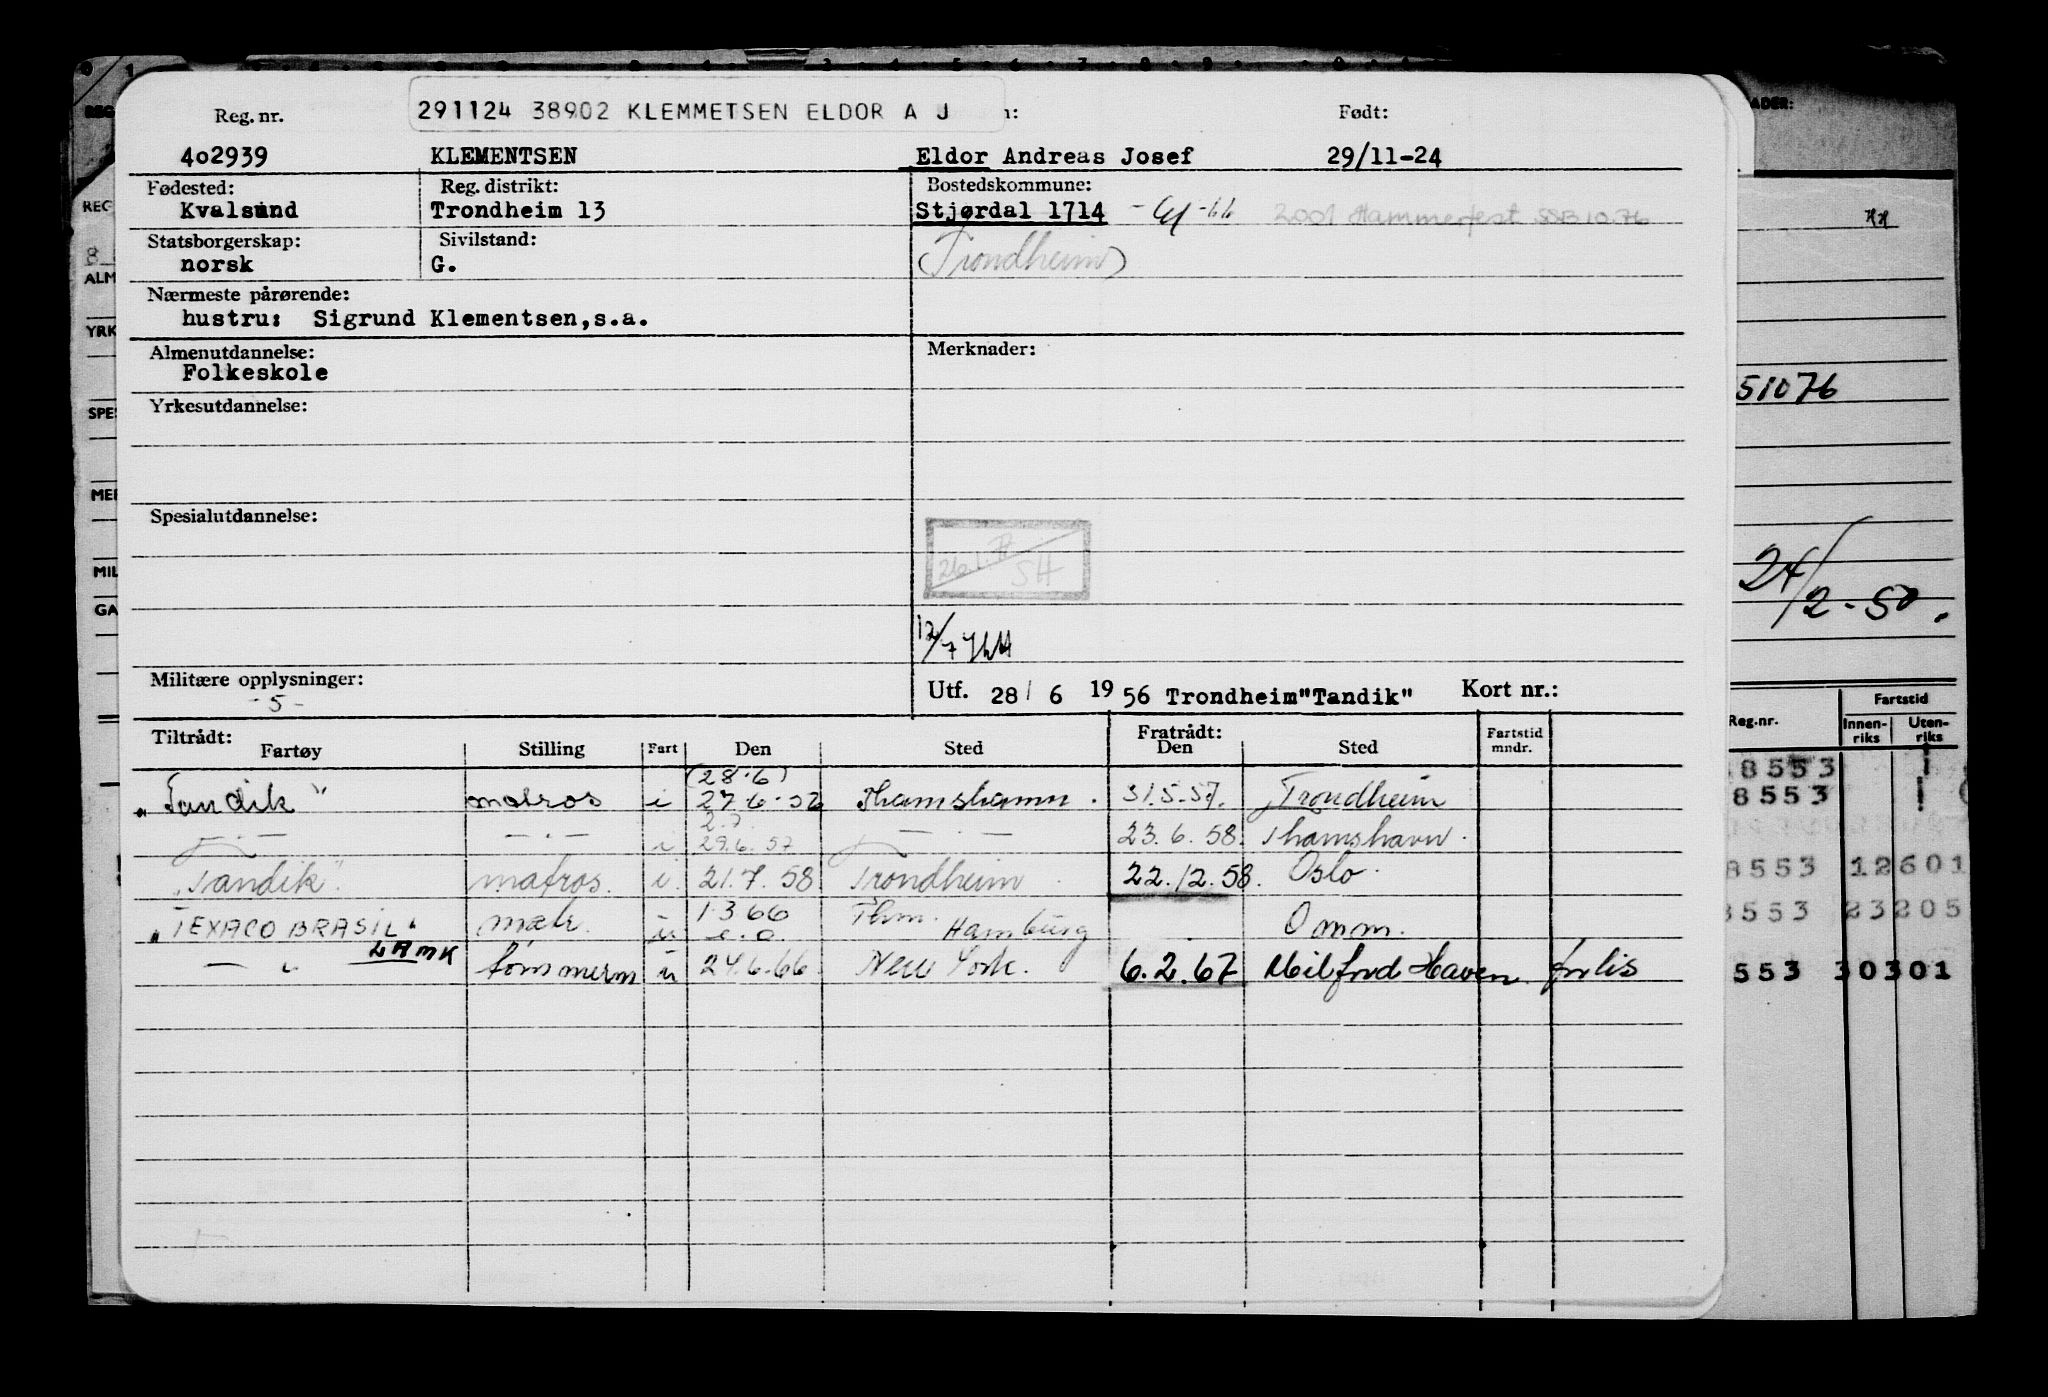 291124 38902 KLEMMETSEN ELDOR A J
Reg. nr. Født:
402939 KLEMENTSEN Eldor Andreas Josef 29/11-24
Fødested: Reg. distrikt: Bostedskommune:
Kvalsund Trondheim 13 Stjørdal 1714 -66 2001 Hammerfest SSB 10.76
Statsborgerskap: Sivilstand:
norsk G. (Trondheim)
Nærmeste pårørende:
hustru: Sigrund Klementsen, s.a.
Almenutdannelse: Merknader:
Folkeskole
Yrkesutdannelse:
Spesialutdannelse:
Militære opplysninger:
- 5 -
Utf. 28/ 6 1956 Trondheim "Tandik" Kort nr.:
Tiltrådt: Fratrådt:
Fartøy Stilling Fart Den Sted Den Sted Fartstid mndr.
(28.6)
"Tandik" matros i 27.6.56 Thamshamn. 31.5.57. Trondheim
2.7.
— " — — " — i 29.6.57 — " — 23.6.58. Thamshavn.
"Tandik". matros. i. 21.7.58 Trondheim 22.12.58. Oslo.
"TEXACO BRASIL" matr. u 1.3.66 Thm. Hamburg Omm.
LAMK
— " — tømmerm u 24.6.66 New York. 6.2.67 Milford Haven
REG
REG
ALM
YRK
SPES
MIL
GA
51076
24/2-50.
Reg.nr. Fartstid
Innen-riks Uten-riks
8553
8553
8553 12601
8553 23205
553 30301